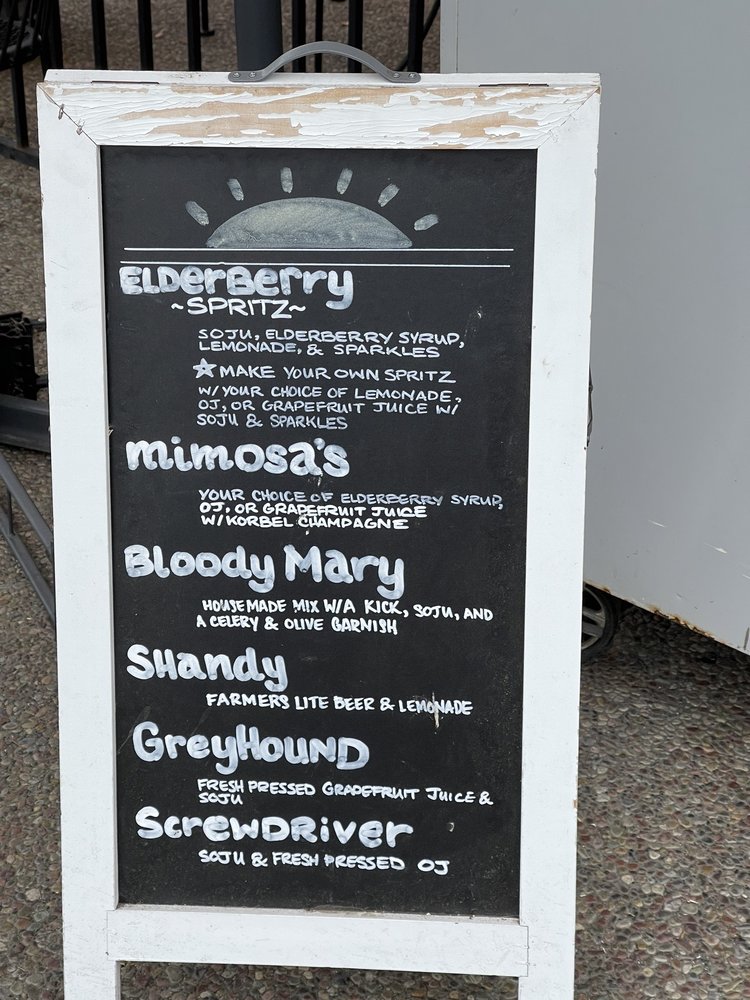 ELDerBerry
~SPRITZ~
SOJU, ELDERBERRY SYRUP,
LEMONADE, & SPARKLES
☆ MAKE YOUR OWN SPRITZ
W/ YOUR CHOICE OF LEMONADE,
OJ, OR GRAPEFRUIT JUICE W/
SOJU & SPARKLES
mimosa's
YOUR CHOICE OF ELDERBERRY SYRUP,
OJ, OR GRAPEFRUIT JUICE
W/ KORBEL CHAMPAGNE
Bloody Mary
HOUSEMADE MIX W/A KICK, SOJU, AND
A CELERY & OLIVE GARNISH
SHandy
FARMERS LITE BEER & LEMONADE
GreyHOUND
FRESH PRESSED GRAPEFRUIT JUICE &
SOJU
ScrewDRiver
SOJU & FRESH PRESSED OJ